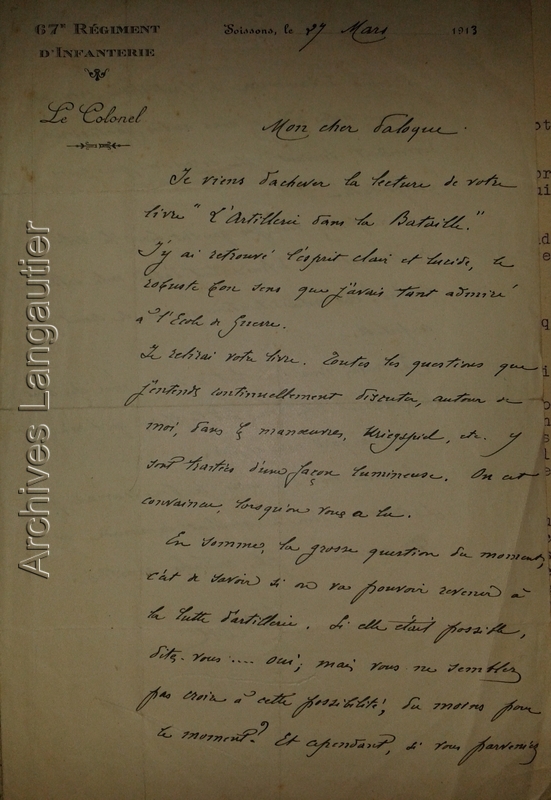 67e RÉGIMENT
D'INFANTERIE
Le Colonel
Soissons, le 27 Mars 1913
Mon cher Paloque.
Je viens d'achever la lecture de votre
livre "L'Artillerie dans la Bataille."
J'y ai retrouvé l'esprit clair et lucide, le
robuste bon sens que j'avais tant admiré
à l'Ecole de Guerre.
Je relirai votre livre. Toutes les questions que
j'entends continuellement discuter, autour de
moi, dans les manœuvres, Kriegspiel, etc. y
sont traitées d'une façon lumineuse. On est
convaincu, lorsqu'on vous a lu.
En somme, la grosse question du moment,
c'est de savoir si on va pouvoir revenir à
la lutte d'artillerie. Si elle était possible,
dites-vous .... oui; mais vous ne semblez
pas croire à cette possibilité, du moins pour
le moment? Et cependant, si vous parveniez
Archives Langautier